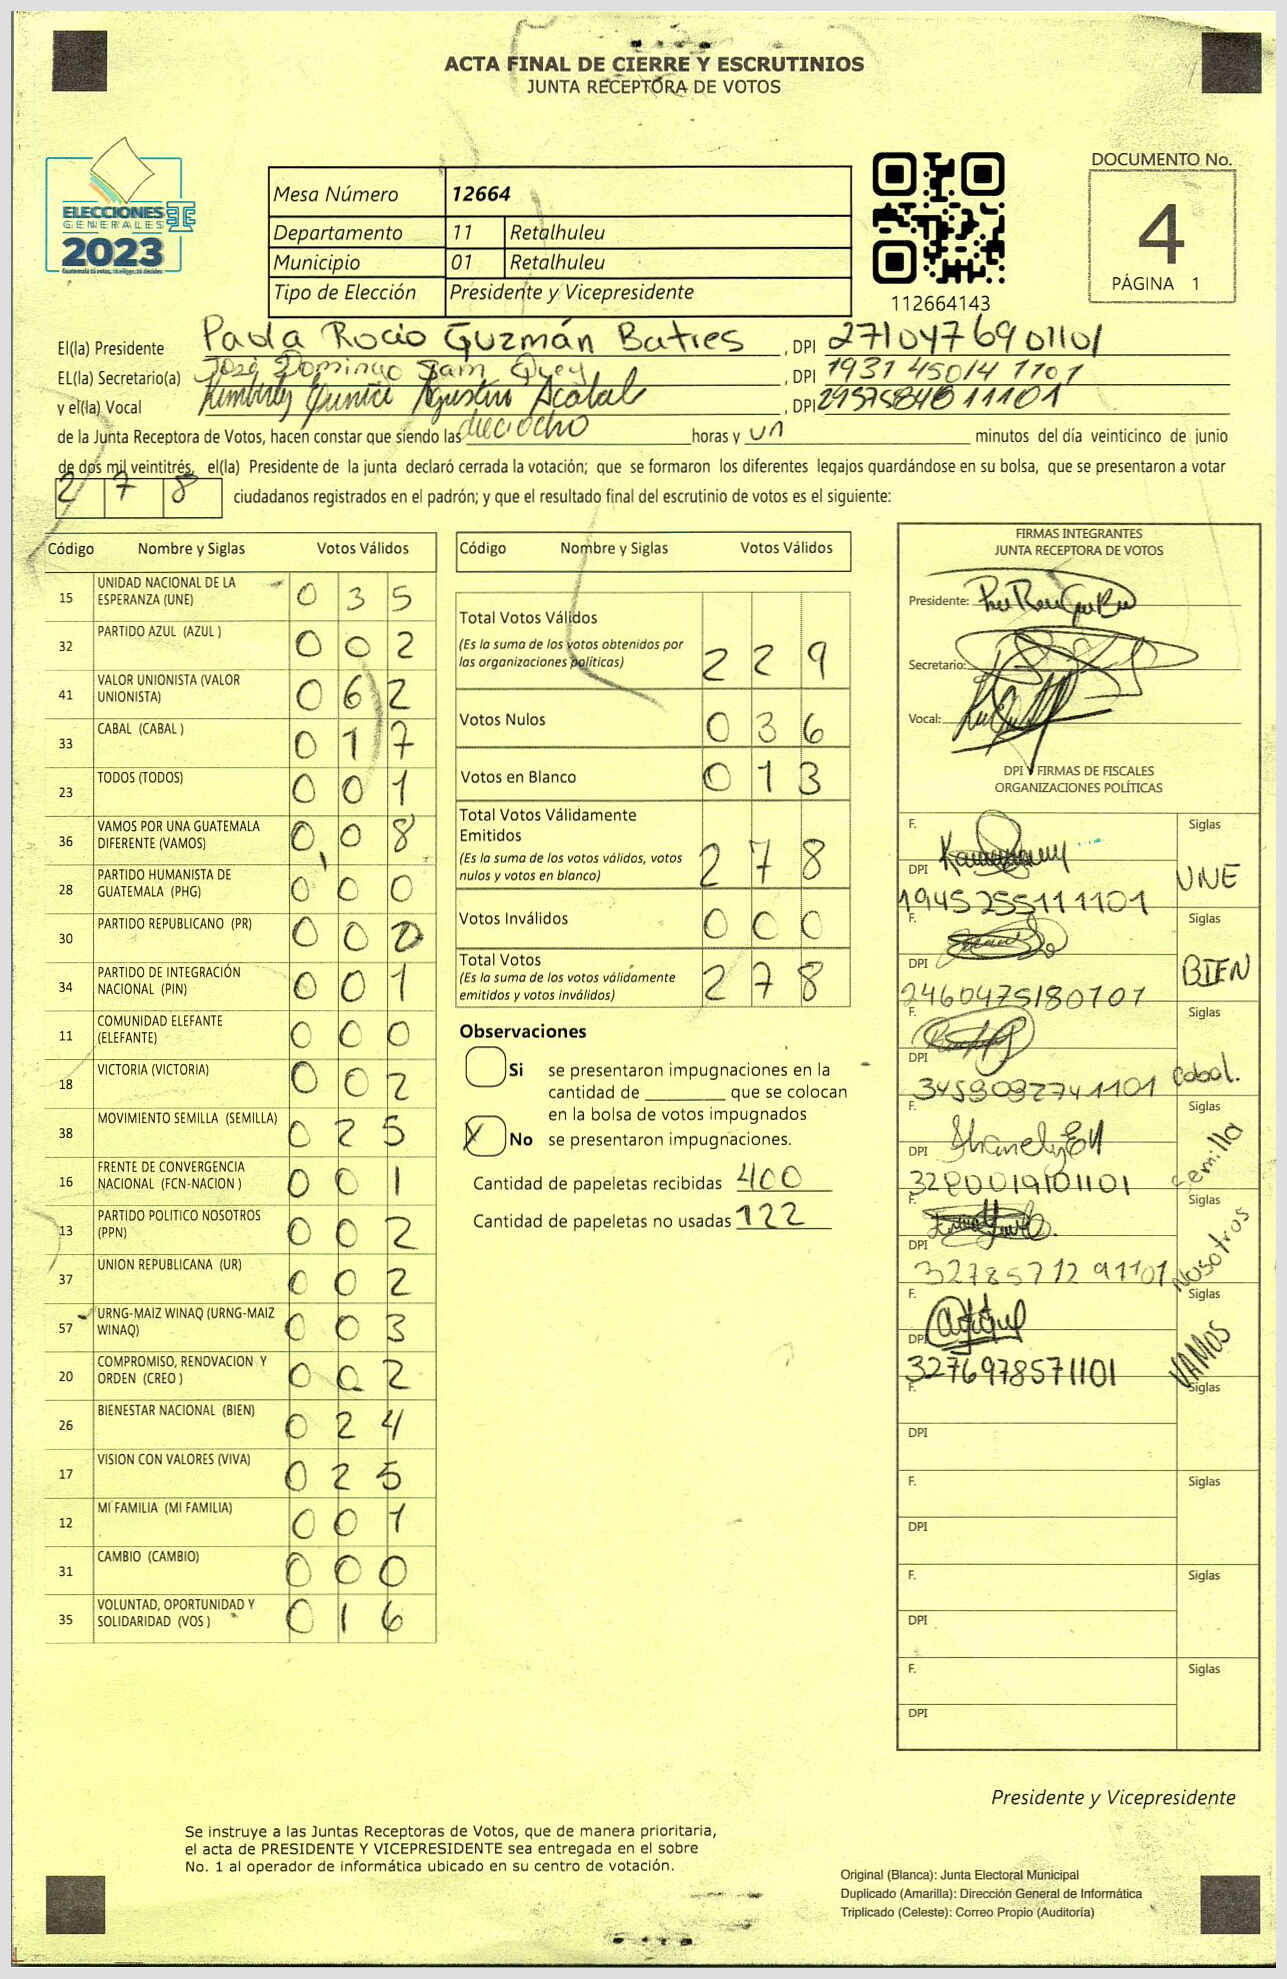 ACTA FINAL DE CIERRE Y ESCRUTINIOS
JUNTA RECEPTORA DE VOTOS
ELECCIONES
GENERALES
2023
Mesa Número 12664
Departamento 11 Retalhuleu
Municipio 01 Retalhuleu
Tipo de Elección Presidente y Vicepresidente
112664143
DOCUMENTO No.
4
PÁGINA 1
El(la) Presidente Paola Rocio Guzmán Batres, DPI 2710476901101
EL(la) Secretario(a) José Domingo Sam Quey, DPI 1931 45014 1101
y el(la) Vocal Kimberly Eunice Agustin Acabal, DPI 2957584611101
de la Junta Receptora de Votos, hacen constar que siendo las dieciocho horas y un minutos del día veinticinco de junio
de dos mil veintitrés, el(la) Presidente de la junta declaró cerrada la votación; que se formaron los diferentes legajos guardándose en su bolsa, que se presentaron a votar
2 7 8 ciudadanos registrados en el padrón; y que el resultado final del escrutinio de votos es el siguiente:
Código Nombre y Siglas Votos Válidos
15 UNIDAD NACIONAL DE LA ESPERANZA (UNE) 0 3 5
32 PARTIDO AZUL (AZUL ) 0 0 2
41 VALOR UNIONISTA (VALOR UNIONISTA) 0 6 2
33 CABAL (CABAL ) 0 1 7
23 TODOS (TODOS) 0 0 1
36 VAMOS POR UNA GUATEMALA DIFERENTE (VAMOS) 0 0 8
28 PARTIDO HUMANISTA DE GUATEMALA (PHG) 0 0 0
30 PARTIDO REPUBLICANO (PR) 0 0 0
34 PARTIDO DE INTEGRACIÓN NACIONAL (PIN) 0 0 1
11 COMUNIDAD ELEFANTE (ELEFANTE) 0 0 0
18 VICTORIA (VICTORIA) 0 0 2
38 MOVIMIENTO SEMILLA (SEMILLA) 0 2 5
16 FRENTE DE CONVERGENCIA NACIONAL (FCN-NACION ) 0 0 1
13 PARTIDO POLITICO NOSOTROS (PPN) 0 0 2
37 UNION REPUBLICANA (UR) 0 0 2
57 URNG-MAIZ WINAQ (URNG-MAIZ WINAQ) 0 0 3
20 COMPROMISO, RENOVACION Y ORDEN (CREO ) 0 0 2
26 BIENESTAR NACIONAL (BIEN) 0 2 4
17 VISION CON VALORES (VIVA) 0 2 5
12 MI FAMILIA (MI FAMILIA) 0 0 1
31 CAMBIO (CAMBIO) 0 0 0
35 VOLUNTAD, OPORTUNIDAD Y SOLIDARIDAD (VOS ) 0 1 6
Código Nombre y Siglas Votos Válidos
Total Votos Válidos
(Es la suma de los votos obtenidos por
las organizaciones políticas) 2 2 9
Votos Nulos 0 3 6
Votos en Blanco 0 1 3
Total Votos Válidamente
Emitidos
(Es la suma de los votos válidos, votos
nulos y votos en blanco) 2 7 8
Votos Inválidos 0 0 0
Total Votos
(Es la suma de los votos válidamente
emitidos y votos inválidos) 2 7 8
Observaciones
Si se presentaron impugnaciones en la
cantidad de ________ que se colocan
en la bolsa de votos impugnados
X No se presentaron impugnaciones.
Cantidad de papeletas recibidas 400
Cantidad de papeletas no usadas 122
FIRMAS INTEGRANTES
JUNTA RECEPTORA DE VOTOS
Presidente:
Secretario:
Vocal:
DPI Y FIRMAS DE FISCALES
ORGANIZACIONES POLÍTICAS
F. Siglas
DPI UNE
1945 255111101
F. Siglas
DPI BIEN
2460475180101
F. Siglas
DPI Cabal.
3459092741101
F. Siglas
DPI Semilla
3280019101101
F. Siglas
DPI Nosotros
3278571291101
F. Siglas
DPI VAMOS
3276978571101
F. Siglas
DPI
F. Siglas
DPI
F. Siglas
DPI
F. Siglas
DPI
Presidente y Vicepresidente
Se instruye a las Juntas Receptoras de Votos, que de manera prioritaria,
el acta de PRESIDENTE Y VICEPRESIDENTE sea entregada en el sobre
No. 1 al operador de informática ubicado en su centro de votación.
Original (Blanca): Junta Electoral Municipal
Duplicado (Amarilla): Dirección General de Informática
Triplicado (Celeste): Correo Propio (Auditoría)